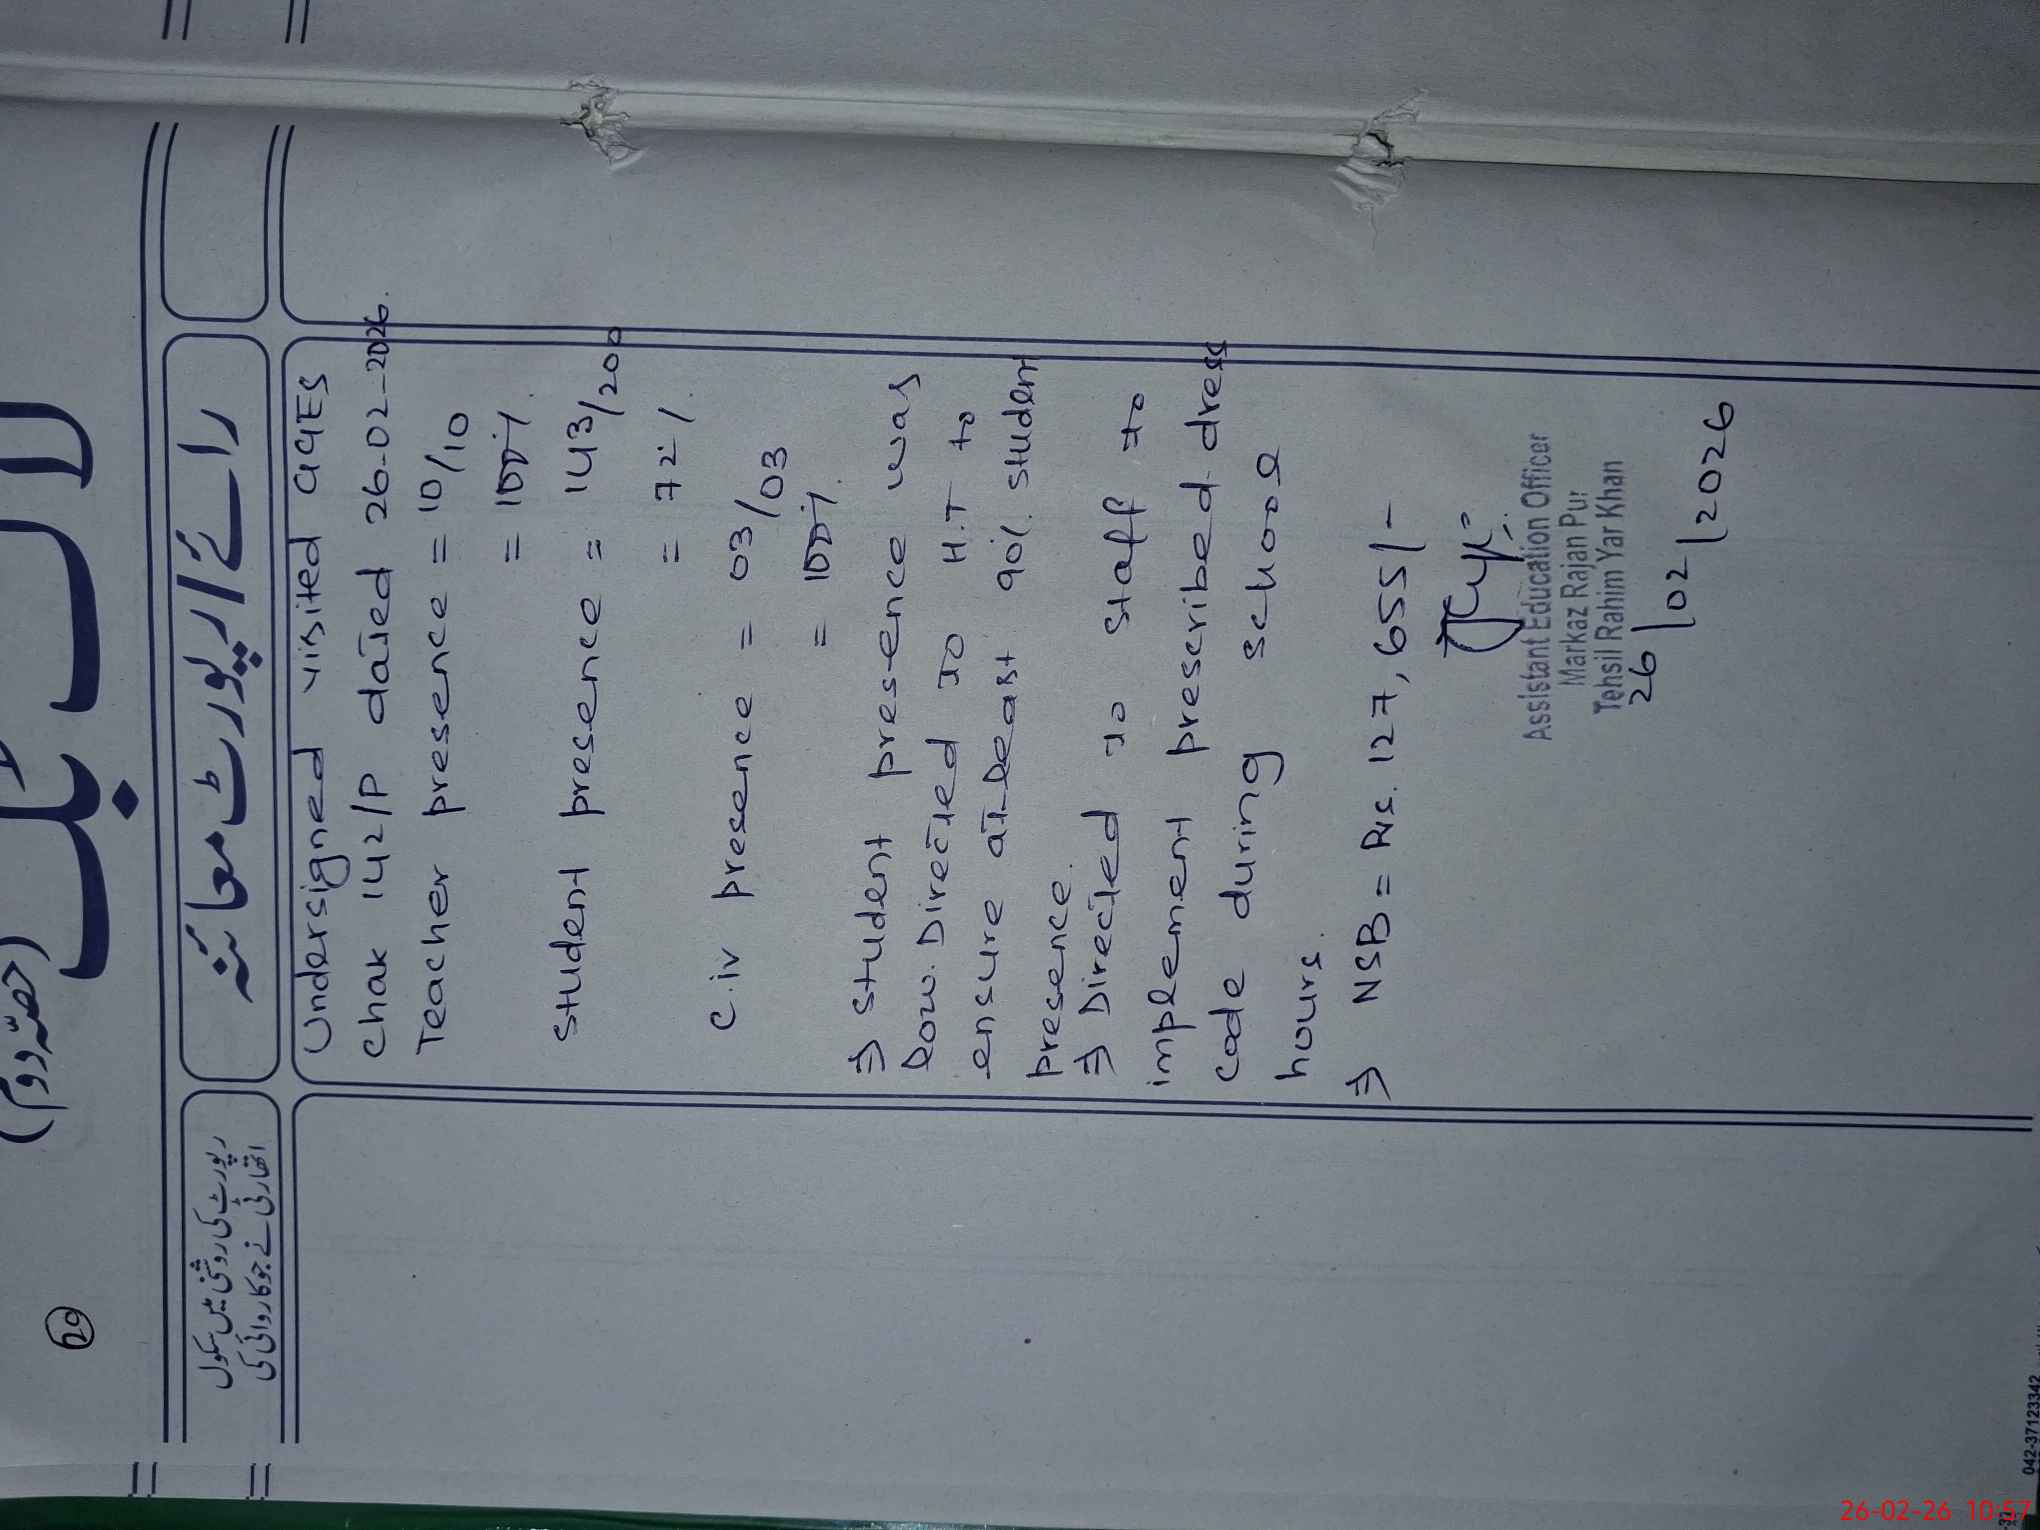 (حصّہ دوم)
29
لاگ بک
رائے / رپورٹ معائنہ
رپورٹ کی روشنی میں سکول
اتھارٹی نے جو کاروائی کی
Undersigned visited GGES
Chak 142/P dated 26-02-2026.
Teacher presence = 10/10
= 100%.
Student presence = 143/200
= 72%.
C.iv presence = 03/03
= 100%.
⇒ Student presence was
low. Directed to H.T to
ensure at-least 90%. student
presence.
⇒ Directed to staff to
implement prescribed dress
code during school
hours.
⇒ NSB = Rs. 127,655/-
Assistant Education Officer
Markaz Rajan Pur
Tehsil Rahim Yar Khan
26/02/2026
042-37123342
26-02-26 10:57